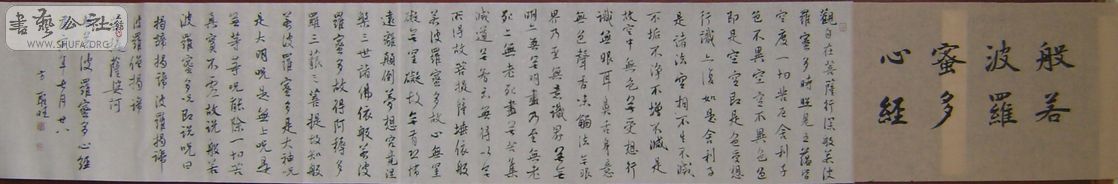 般若
波羅
蜜多
心經
觀自在菩薩行深般若波
羅蜜多時照見五蘊皆
空度一切苦厄舍利子
色不異空空不異色色
即是空空即是色受想
行識亦復如是舍利子
是諸法空相不生不滅
不垢不淨不增不減是
故空中無色無受想行
識無眼耳鼻舌身意
無色聲香味觸法無眼
界乃至無意識界無無
明亦無無明盡乃至無老
死亦無老死盡無苦集
滅道無智亦無得以無
所得故菩提薩埵依般
若波羅蜜多故心無罣
礙無罣礙故無有恐怖
遠離顛倒夢想究竟涅
槃三世諸佛依般若波
羅蜜多故得阿耨多
羅三藐三菩提故知般
若波羅蜜多是大神咒
是大明咒是無上咒是
無等等咒能除一切苦
真實不虛故說般若
波羅蜜多咒即說咒曰
揭諦揭諦波羅揭諦
波羅僧揭諦
薩婆訶
波羅蜜多心經
年七月廿八
WWW.SHUFA.ORG